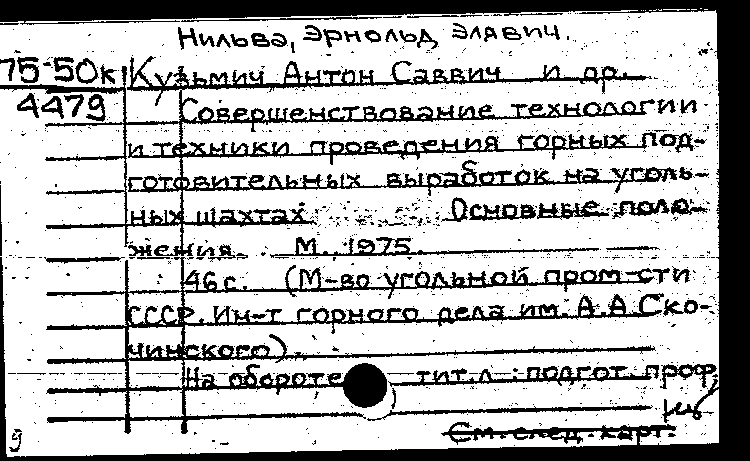 Нильва, Эрнольд Элавич.
75-50к Кузьмич, Антон Саввич и др.
4479 Совершенствование технологии
и техники проведения горных под-
готовительных выработок на уголь-
ных шахтах. Основные поло-
жения. М., 1975.
46с. (М-во угольной пром-сти
СССР. Ин-т горного дела им. А.А Ско-
чинского).
На обороте тит.л.: подгот. проф.
См. след. карт.
9